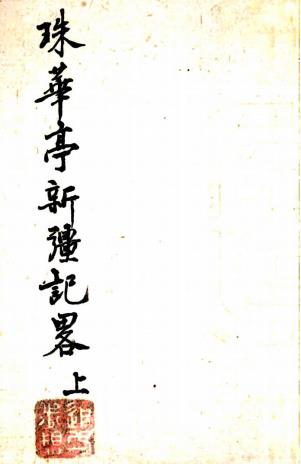 珠華亭新疆記畧 上